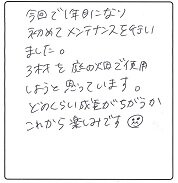 今回で1年目になり
初めてメンテナンスを行い
ました。
3材を庭の畑で使用
しようと思っています。
どのくらい成長がちがうか
これから楽しみです